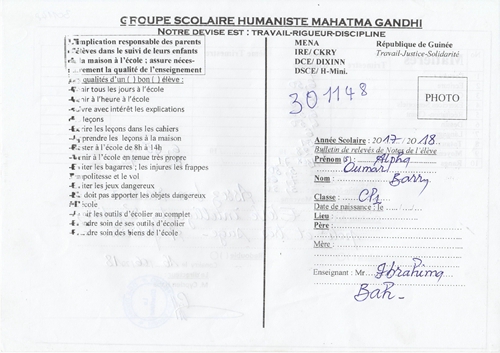 GROUPE SCOLAIRE HUMANISTE MAHATMA GANDHI
NOTRE DEVISE EST : TRAVAIL-RIGUEUR-DISCIPLINE
L'implication responsable des parents
élèves dans le suivi de leurs enfants
la maison à l'école ; assure néces-
rement la qualité de l'enseignement
qualités d'un ( ) bon ( ) élève :
nir tous les jours à l'école
nir à l'heure à l'école
vre avec intérêt les explications
leçons
rire les leçons dans les cahiers
prendre les leçons à la maison
ster à l'école de 8h à 14h
nir à l'école en tenue très propre
iter les bagarres ; les injures les frappes
politesse et le vol
iter les jeux dangereux
doit pas apporter les objets dangereux
école
oir les outils d'écolier au complet
ndre soin de ses outils d'écolier
ndre soin des biens de l'école
MENA
IRE/ CKRY
DCE/ DIXINN
DSCE/ H-Mini.
République de Guinée
Travail-Justice-Solidarité
301148
PHOTO
Année Scolaire : 2017 /2018
Bulletin de relevés de Notes de l'élève
Prénom (s) : Alpha
Oumar
Nom : Barry
Classe : CP1
Date de naissance : le
Lieu :
Père :
Mère :
Enseignant : Mr Ibrahima
Bah